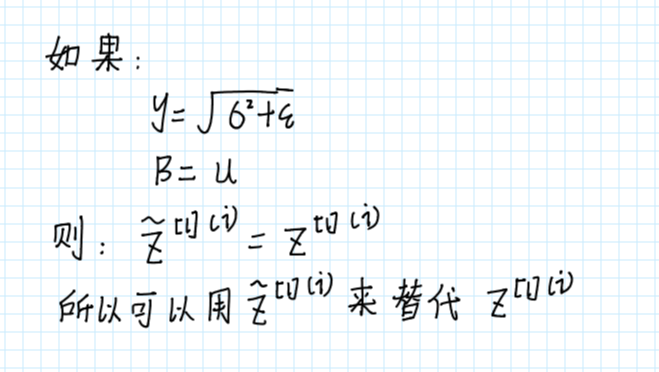 如果:
y=√6²+ε
B=u
则: z̃[l](i)=z[l](i)
所以可以用z̃[l](i)来替代z[l](i)